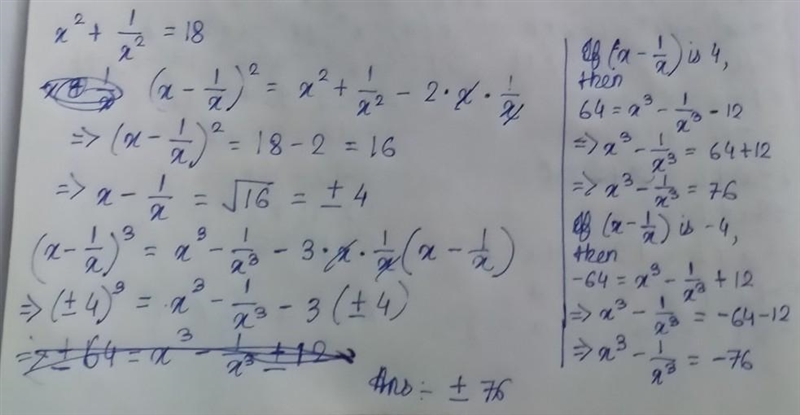 x² + 1/x² = 18
(x - 1/x)² = x² + 1/x² - 2 · x · 1/x
=> (x - 1/x)² = 18 - 2 = 16
=> x - 1/x = √16 = ± 4
(x - 1/x)³ = x³ - 1/x³ - 3 · x · 1/x (x - 1/x)
=> (± 4)³ = x³ - 1/x³ - 3 (± 4)
=> ± 64 = x³ - 1/x³ ± 12
Ans :- ± 76
If (x - 1/x) is 4,
then
64 = x³ - 1/x³ - 12
=> x³ - 1/x³ = 64 + 12
=> x³ - 1/x³ = 76
If (x - 1/x) is -4,
then
-64 = x³ - 1/x³ + 12
=> x³ - 1/x³ = -64 - 12
=> x³ - 1/x³ = -76